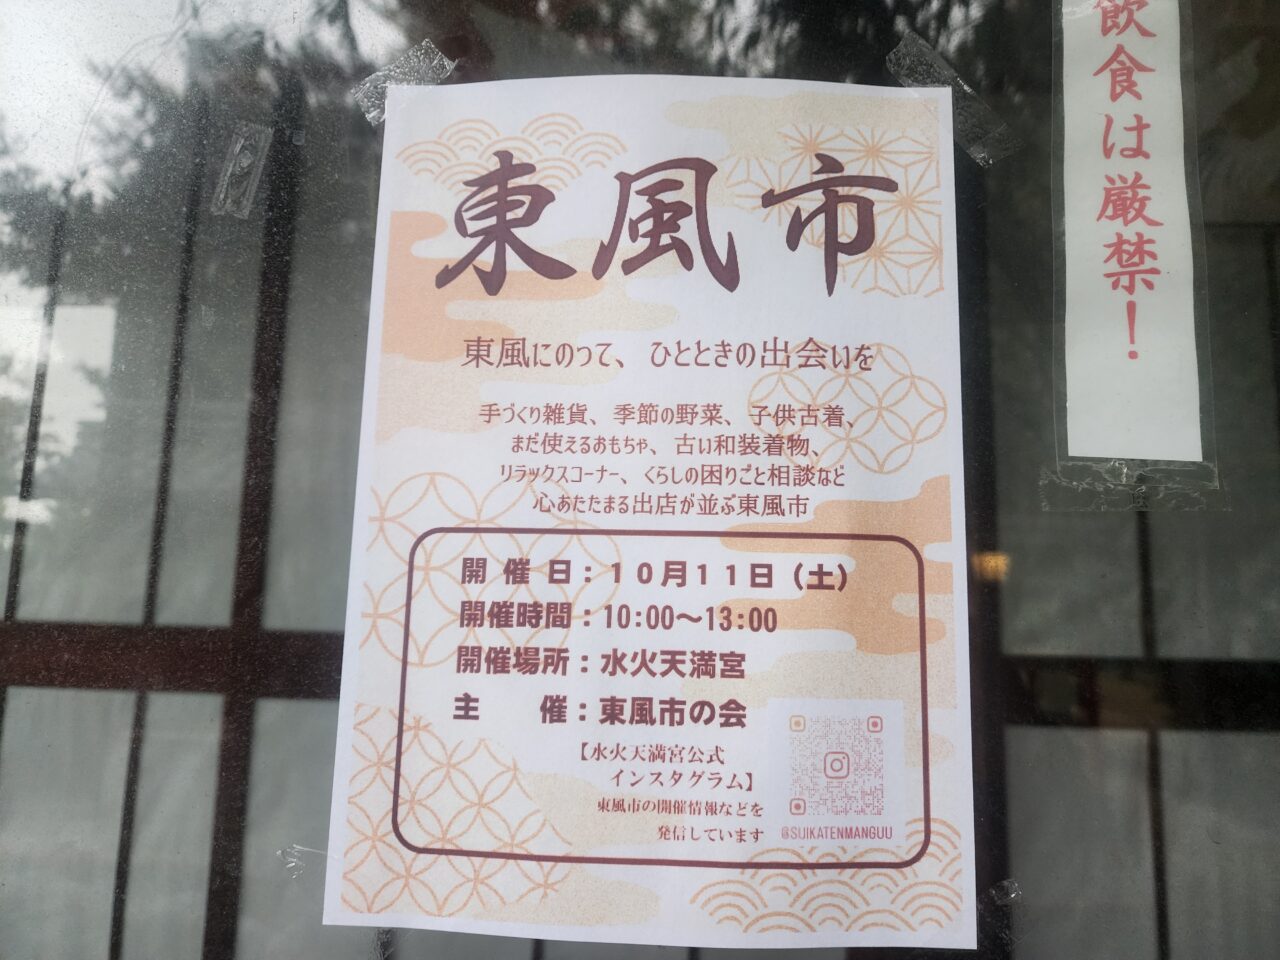 東風市
東風にのって、ひとときの出会いを
手づくり雑貨、季節の野菜、子供古着、
まだ使えるおもちゃ、古い和装着物、
リラックスコーナー、くらしの困りごと相談など
心あたたまる出店が並ぶ東風市
開催日：10月11日（土）
開催時間：10:00〜13:00
開催場所：水火天満宮
主　催：東風市の会
【水火天満宮公式
インスタグラム】
東風市の開催情報などを
発信しています
@SUIKATENMANGUU
飲食は厳禁！